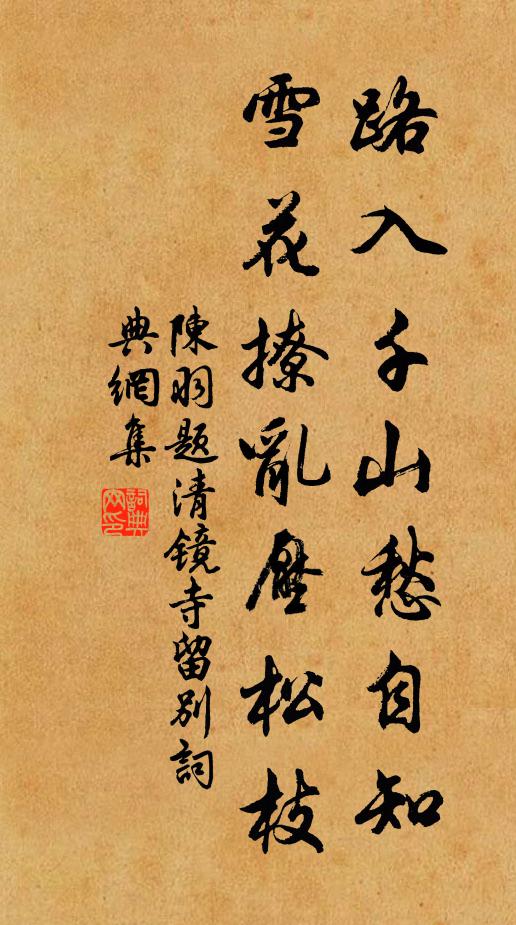 路入千山愁自知
雪花撩亂壓松枝
陳羽題清镜寺留別詞
典網集
詞典
网印